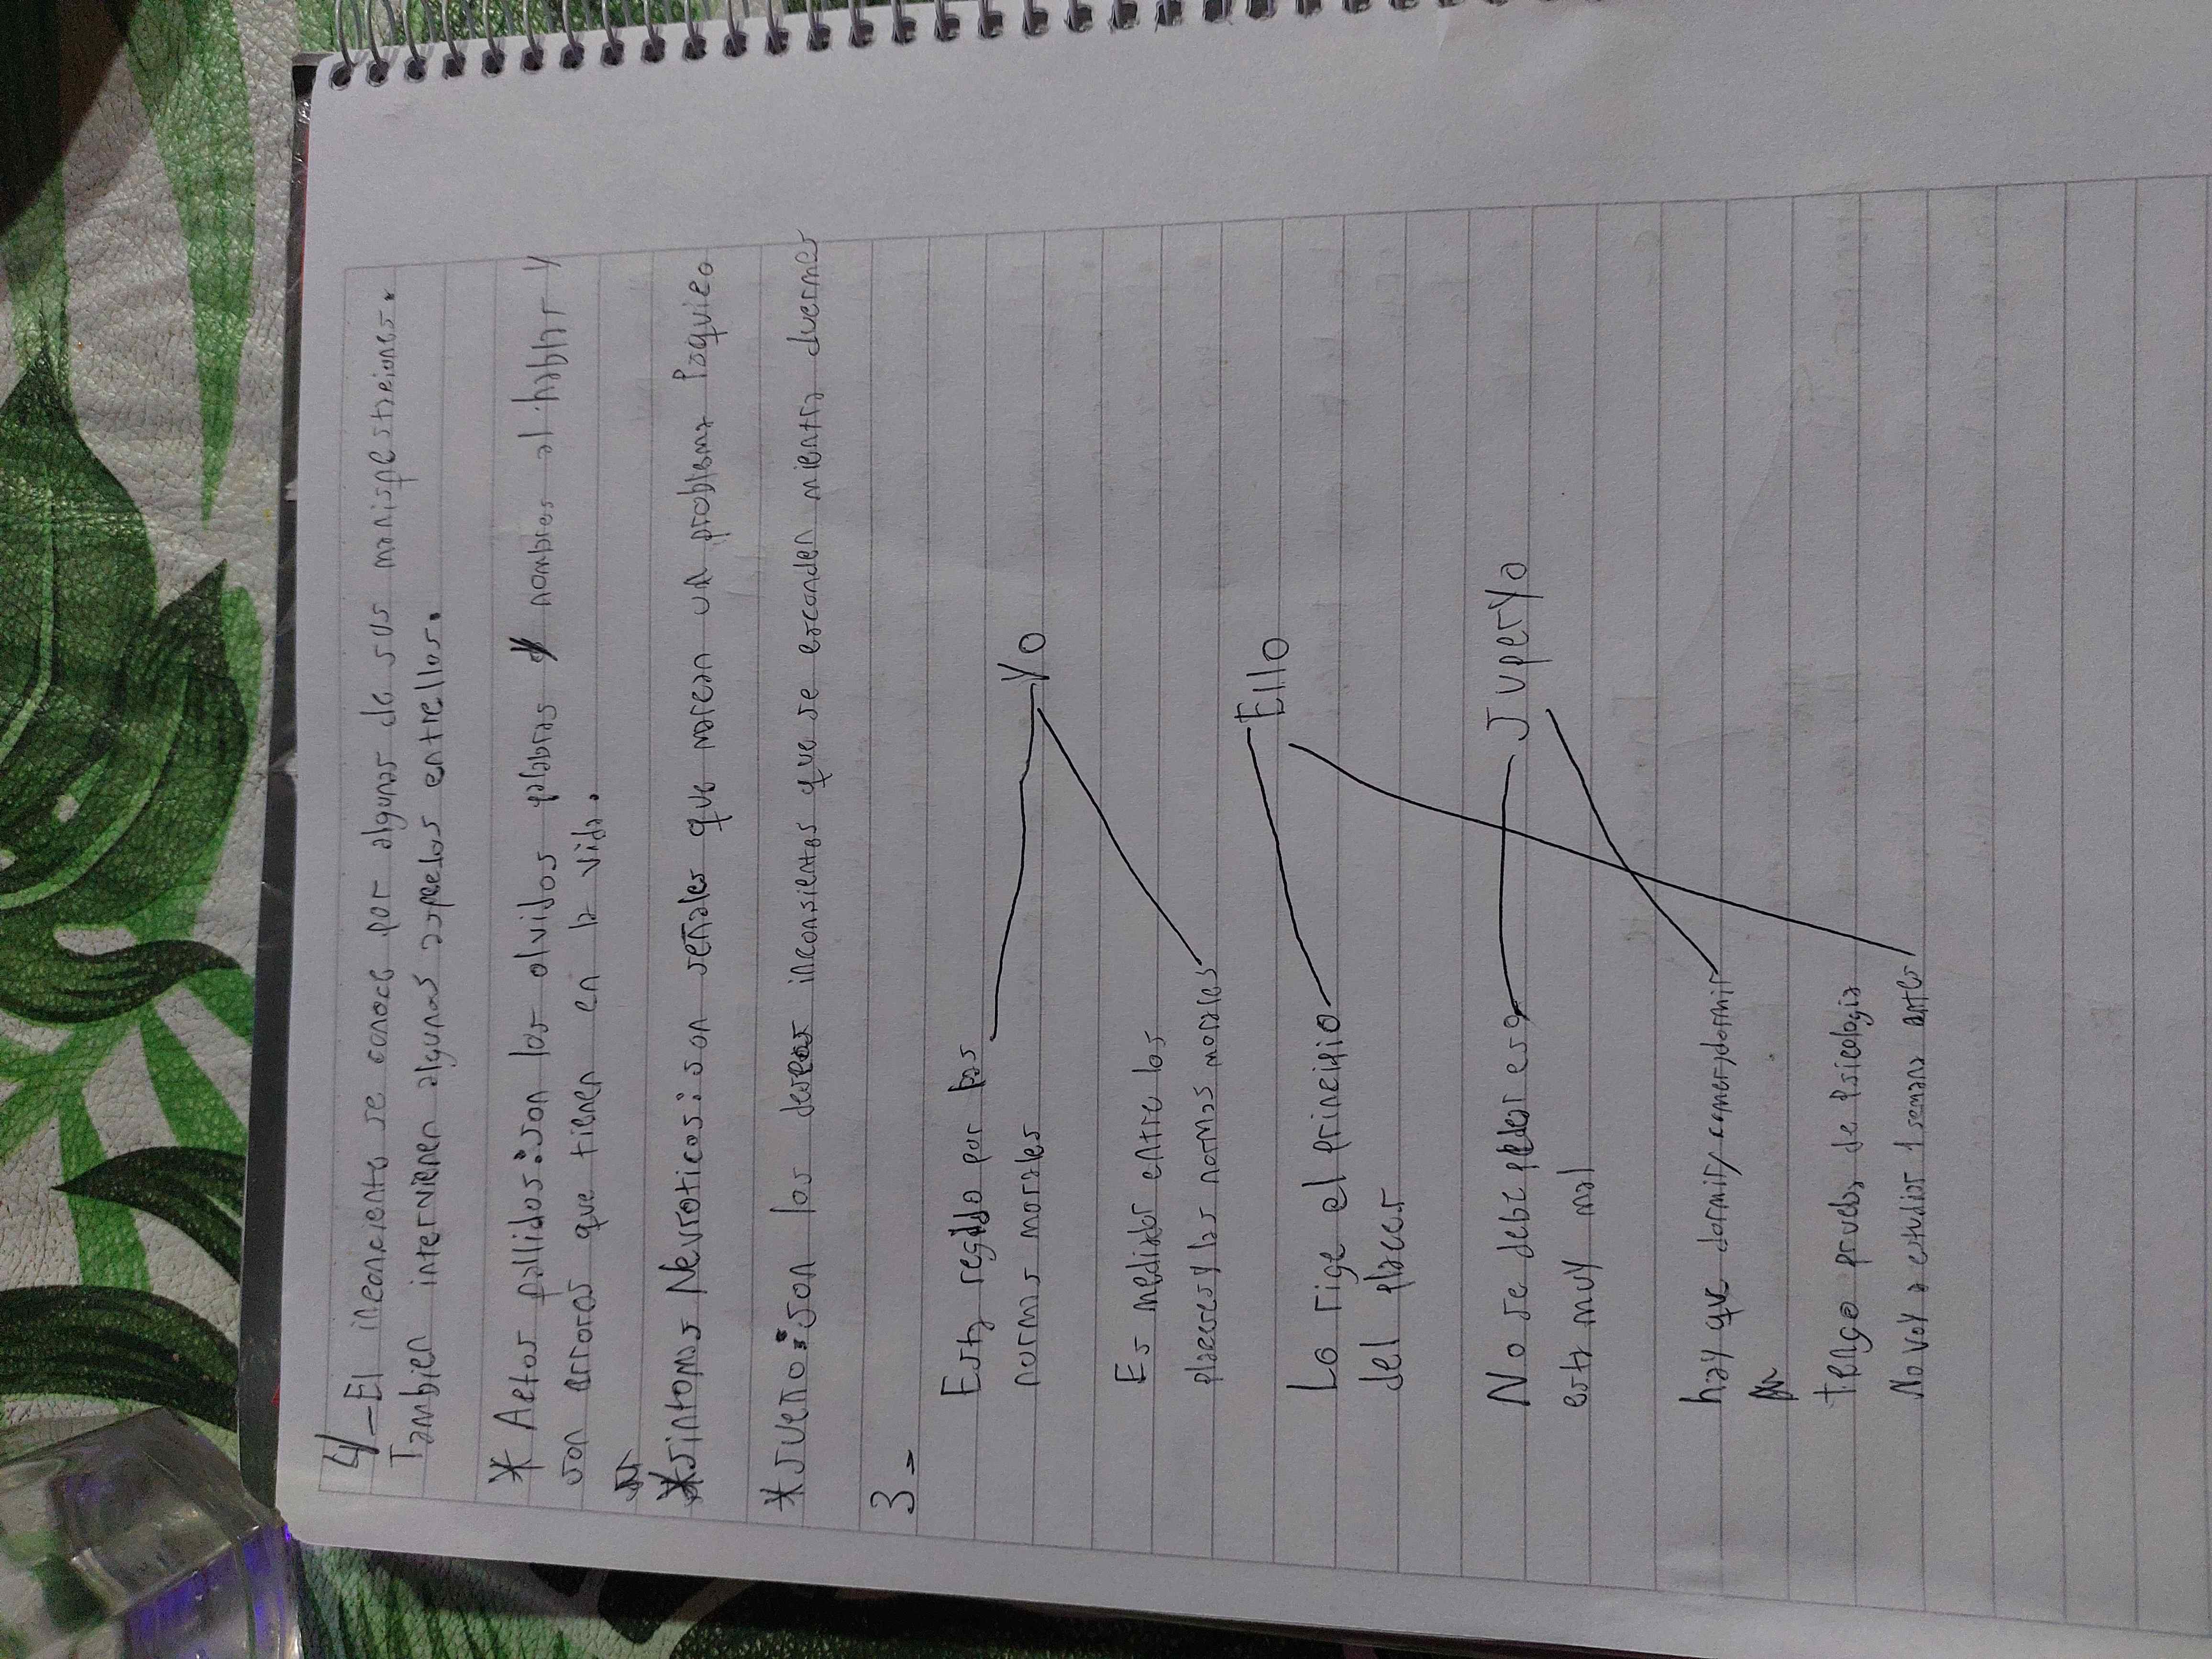 4-El inconciente se conoce por algunas de sus manispestaciones.
Tambien intervienen algunos aspectos entrellos.
* Actos pallidos: son los olvidos palabras y nombres al hablar y
son errores que tienen en la vida.
* Sintomas Nevroticos: son señales que marcan un problema Psiquico
* Sueño: son los deseos inconsientes que se esconden mientra duermes
3-
Esta regido por las
normas morales
Yo
Es mediador entre los
placeres y las normas morales
Ello
Lo rige el principio
del placer
Superyo
No se debe peder eso
esta muy mal
hay que dormir, comer, dormir
tengo prueba de Psicologia
No voy a estudiar 1 semana antes